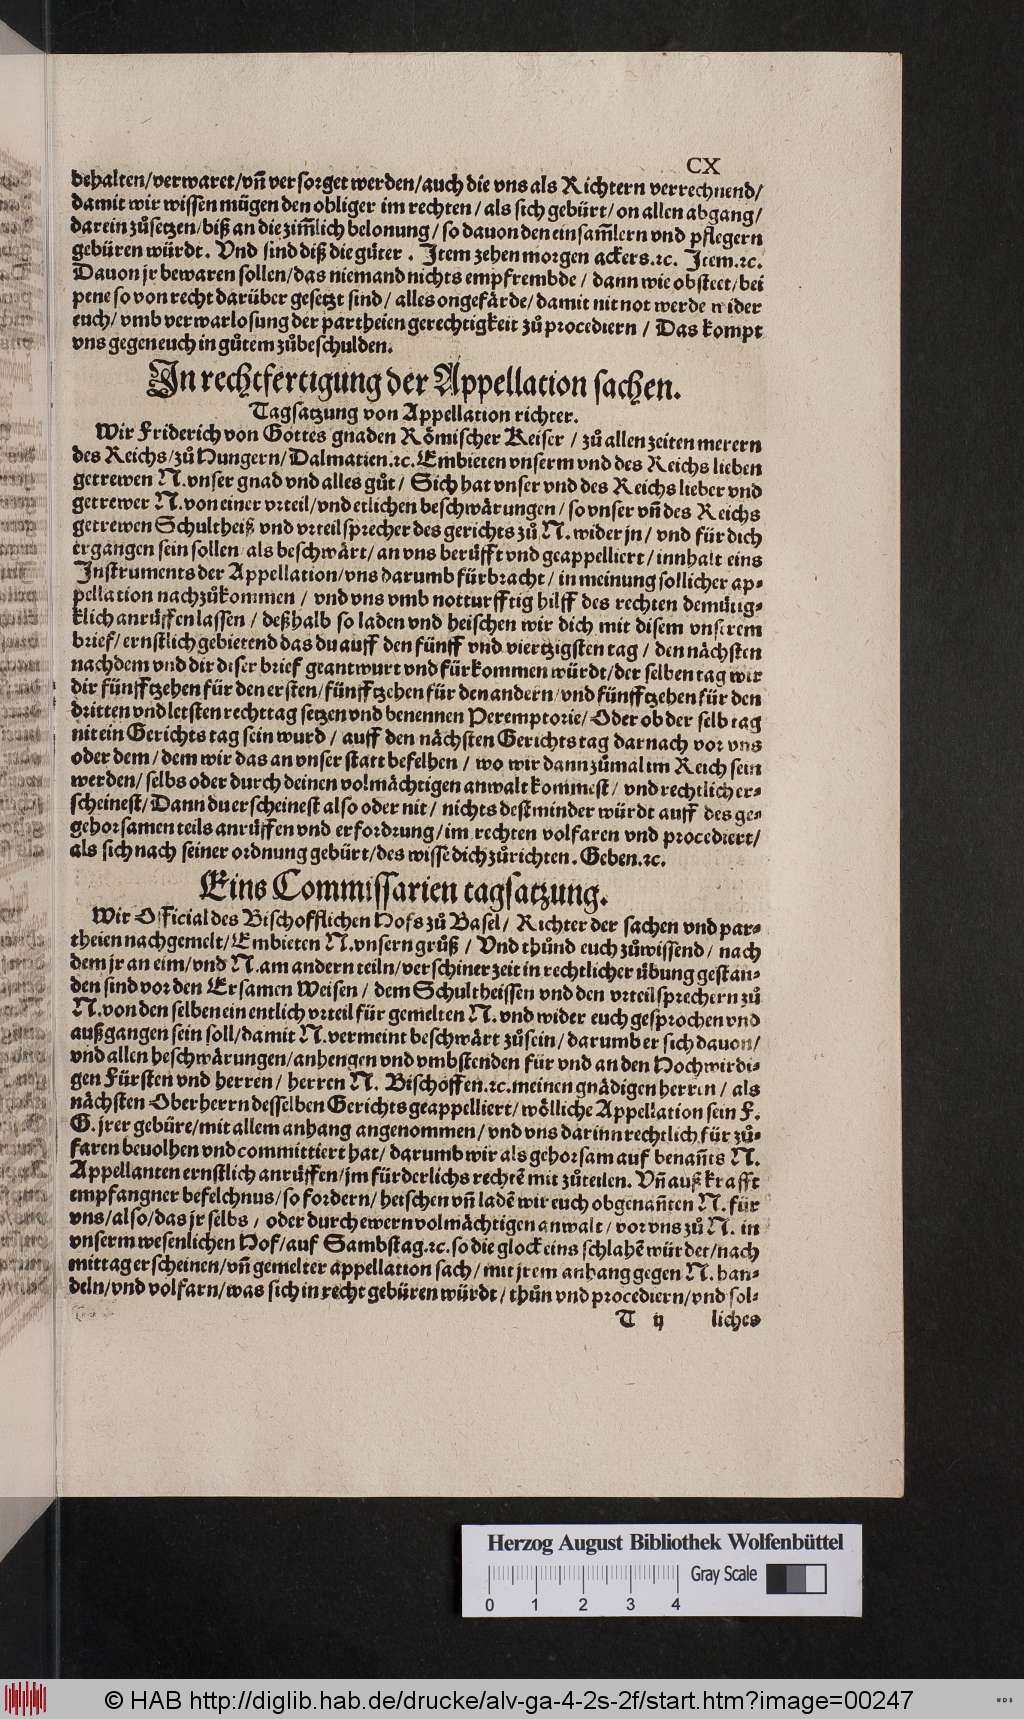 CX
behalten/verwaret/vn̄ versorget werden/auch die vns als Richtern verrechnend/
damit wir wissen mügen den obliger im rechten/als sich gebürt/on allen abgang/
darein zůsetzen/biß an die zim̄lich belonung/so dauon den einsam̄lern vnd pflegern
gebüren würdt. Vnd sind diß die gůter. Jtem zehen morgen ackers.⁊c. Jtem.⁊c.
Dauon jr bewaren sollen/das niemand nichts empfrembde/dann wie obsteet/bei
pene so von recht darüber gesetzt sind/alles ongefärde/damit nit not werde wider
euch/vmb verwarlosung der partheien gerechtigkeit zů procediern/Das kompt
vns gegen euch in gůtem zůbeschulden.
Jn rechtfertigung der Appellation sachen.
Tagsatzung von Appellation richter.
Wir Friderich von Gottes gnaden Römischer Keiser/zů allen zeiten merern
des Reichs/zů Hungern/Dalmatien.⁊c. Embieten vnserm vnd des Reichs lieben
getrewen N. vnser gnad vnd alles gůt/Sich hat vnser vnd des Reichs lieber vnd
getrewer N. von einer vrteil/vnd etlichen beschwärungen/so vnser vn̄ des Reichs
getrewen Schultheiß vnd vrteilsprecher des gerichts zů N. wider jn/vnd für dich
ergangen sein sollen als beschwärt/an vns berůfft vnd geappelliert/innhalt eins
Jnstruments der Appellation/vns darumb fürbracht/in meinung sollicher ap⸗
pellation nachzůkommen/vnd vns vmb notturfftig hilff des rechten demütig⸗
klich anrůffen lassen/deßhalb so laden vnd heischen wir dich mit disem vnserem
brief/ernstlich gebietend das du auff den fünff vnd viertzigsten tag/den nächsten
nachdem vnd dir diser brief geantwurt vnd fürkommen würdt/der selben tag wir
dir fünfftzehen für den ersten/fünfftzehen für den andern/vnd fünfftzehen für den
dritten vnd letsten rechttag setzen vnd benennen Peremptorie/Oder ob der selb tag
nit ein Gerichts tag sein wurd/auff den nächsten Gerichts tag darnach vor vns
oder dem/dem wir das an vnser statt befelhen/wo wir dann zůmal im Reich sein
werden/selbs oder durch deinen volmächtigen anwalt kommest/vnd rechtlich er⸗
scheinest/Dann du erscheinest also oder nit/nichts destminder würdt auff des ge⸗
gehorsamen teils anrůffen vnd erfordrung/im rechten volfaren vnd procediert/
als sich nach seiner ordnung gebürt/des wisse dich zůrichten. Geben.⁊c.
Eins Commissarien tagsatzung.
Wir Official des Bischofflichen Hofs zů Basel/Richter der sachen vnd par⸗
theien nachgemelt/Embieten N. vnsern grůß/Vnd thůnd euch zůwissend/nach
dem jr an eim/vnd N. am andern teiln/verschiner zeit in rechtlicher ůbung gestan⸗
den sind vor den Ersamen Weisen/dem Schultheissen vnd den vrteilsprechern zů
N. von den selben ein entlich vrteil für gemelten N. vnd wider euch gesprochen vnd
außgangen sein soll/damit N. vermeint beschwärt zůsein/darumb er sich dauon/
vnd allen beschwärungen/anhengen vnd vmbstenden für vnd an den Hochwirdi⸗
gen Fürsten vnd herren/herren N. Bischoffen.⁊c. meinen gnädigen herren/als
nächsten Oberherrn desselben Gerichts geappelliert/wölliche Appellation sein F.
G. jrer gebüre/mit allem anhang angenommen/vnd vns darinn rechtlich für zů⸗
faren beuolhen vnd committiert hat/darumb wir als gehorsam auf benan̄ts N.
Appellanten ernstlich anrůffen/jm fürderlichs rechtē mit zůteilen. Vn̄ auß krafft
empfangner befelchnus/so fordern/heischen vn̄ ladē wir euch obgenan̄ten N. für
vns/also/das jr selbs/oder durch ewern volmächtigen anwalt/vor vns zů N. in
vnserm wesenlichen Hof/auf Sambstag.⁊c. so die glock eins schlahē würdet/nach
mittag erscheinen/vn̄ gemelter appellation sach/mit jrem anhang gegen N. han⸗
deln/vnd volfarn/was sich in recht gebüren würdt/thůn vnd procediern/vnd sol⸗
T ij liches
Herzog August Bibliothek Wolfenbüttel
Gray Scale
0 1 2 3 4
© HAB http://diglib.hab.de/drucke/alv-ga-4-2s-2f/start.htm?image=00247